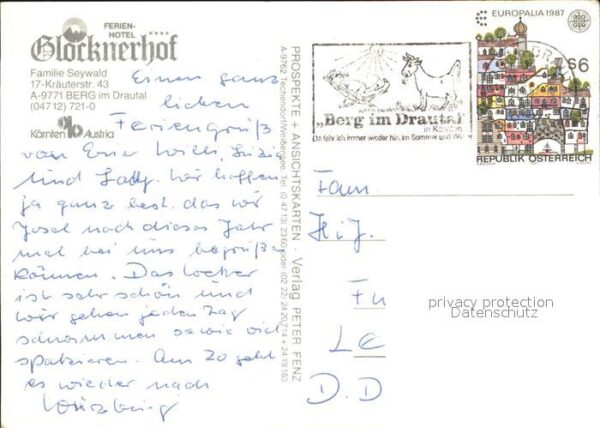 FERIEN-
HOTEL ****
Glocknerhof
Familie Seywald
17-Kräuterstr. 43
A-9771 BERG im Drautal
(04712) 721-0
Kärnten Austria
Einen ganz
lieben
Feriengruß
von Eurer Willi,
und Lady. Wir hoffen
ja ganz fest das wir
Josef noch dieses Jahr
mal bei uns begrüßen
können. Das Wetter
ist sehr schön und
wir gehen jeden Tag
schwimmen sowie viel
spazieren. Am 20 geht
es wieder nach
Würzburg
PROSPEKTE + ANSICHTSKARTEN · Verlag PETER FENZ
A-9762 Techendorf/Weißensee, Tel. (0 47 13) 23 60 oder (02 22) 24 20 714 + 24 19 163
„Berg im Drautal"
in Kärnten
Da fahr ich immer wieder hin, im Sommer und Winter
EUROPALIA 1987
S6
REPUBLIK ÖSTERREICH
Fam.
H. J.
Fu
LE
D.D
privacy protection
Datenschutz